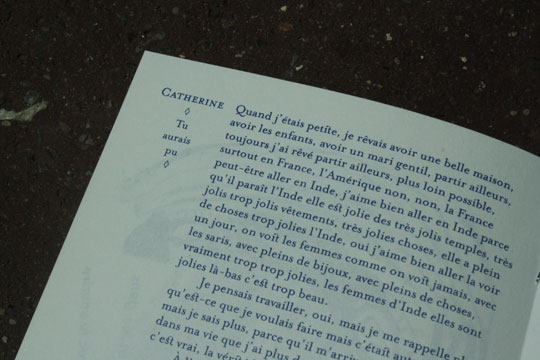 CATHERINE
◊
Tu
aurais
pu
◊
Quand j'étais petite, je rêvais avoir une belle maison,
avoir les enfants, avoir un mari gentil, partir ailleurs,
toujours j'ai rêvé partir ailleurs, plus loin possible,
surtout en France, l'Amérique non, non, la France
peut-être aller en Inde, j'aime bien aller en Inde parce
qu'il paraît l'Inde elle est jolie des très jolis temples, très
jolis trop jolis vêtements, très jolies choses, elle a plein
de choses trop jolies l'Inde, oui j'aime bien aller la voir
un jour, on voit les femmes comme on voit jamais, avec
les saris, avec pleins de bijoux, avec pleins de choses,
vraiment trop trop jolies, les femmes d'Inde elles sont
jolies là-bas c'est trop beau.
Je pensais travailler, oui, mais je me rappelle
qu'est-ce que je voulais faire mais c'était
mais je sais plus, parce qu'il m'arriv
dans ma vie que j'ai plus d
c'est vrai, la vér